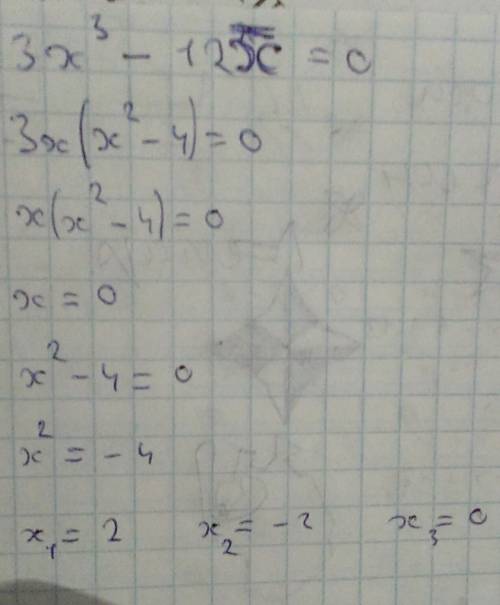 3x³ - 12x = 0
3x(x² - 4) = 0
x(x² - 4) = 0
x = 0
x² - 4 = 0
x² = - 4
x₁ = 2 x₂ = -2 x₃ = 0